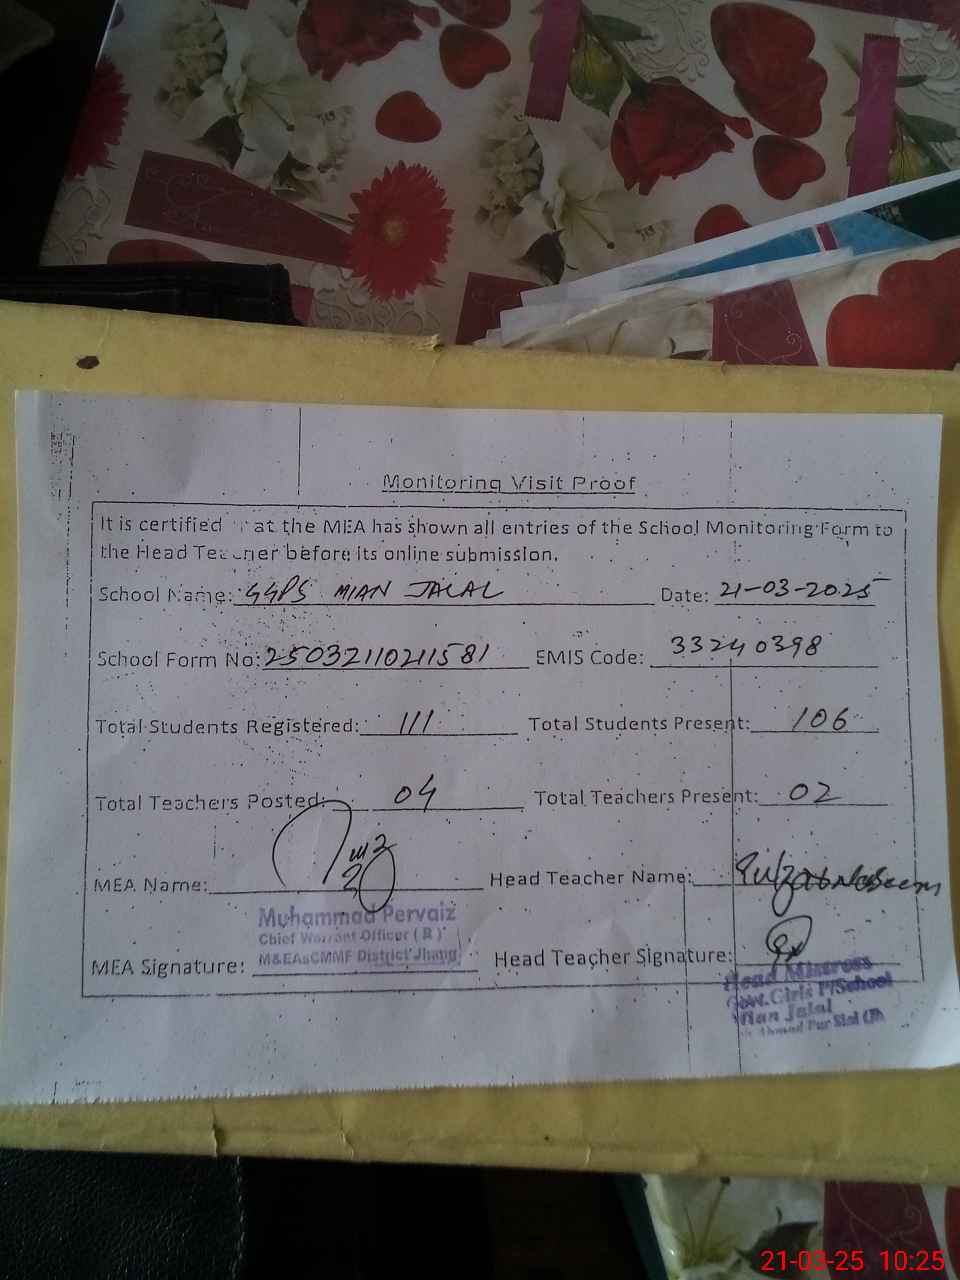 Monitoring Visit Proof
It is certified that the MEA has shown all entries of the School Monitoring Form to
the Head Teacher before its online submission.
School Name: GGPS MIAN JALAL Date: 21-03-2025
School Form No: 250321102111581 EMIS Code: 33240398
Total Students Registered: 111 Total Students Present: 106
Total Teachers Posted: 04 Total Teachers Present: 02
MEA Name: Head Teacher Name: Naseem
Muhammad Pervaiz
Chief Warrant Officer (R)
M&EAsCMMF District Jhang
MEA Signature: Head Teacher Signature:
Head Misstress
Gov.Girls P/School
Mian Jalal
Ahmad Pur Sial
21-03-25 10:25